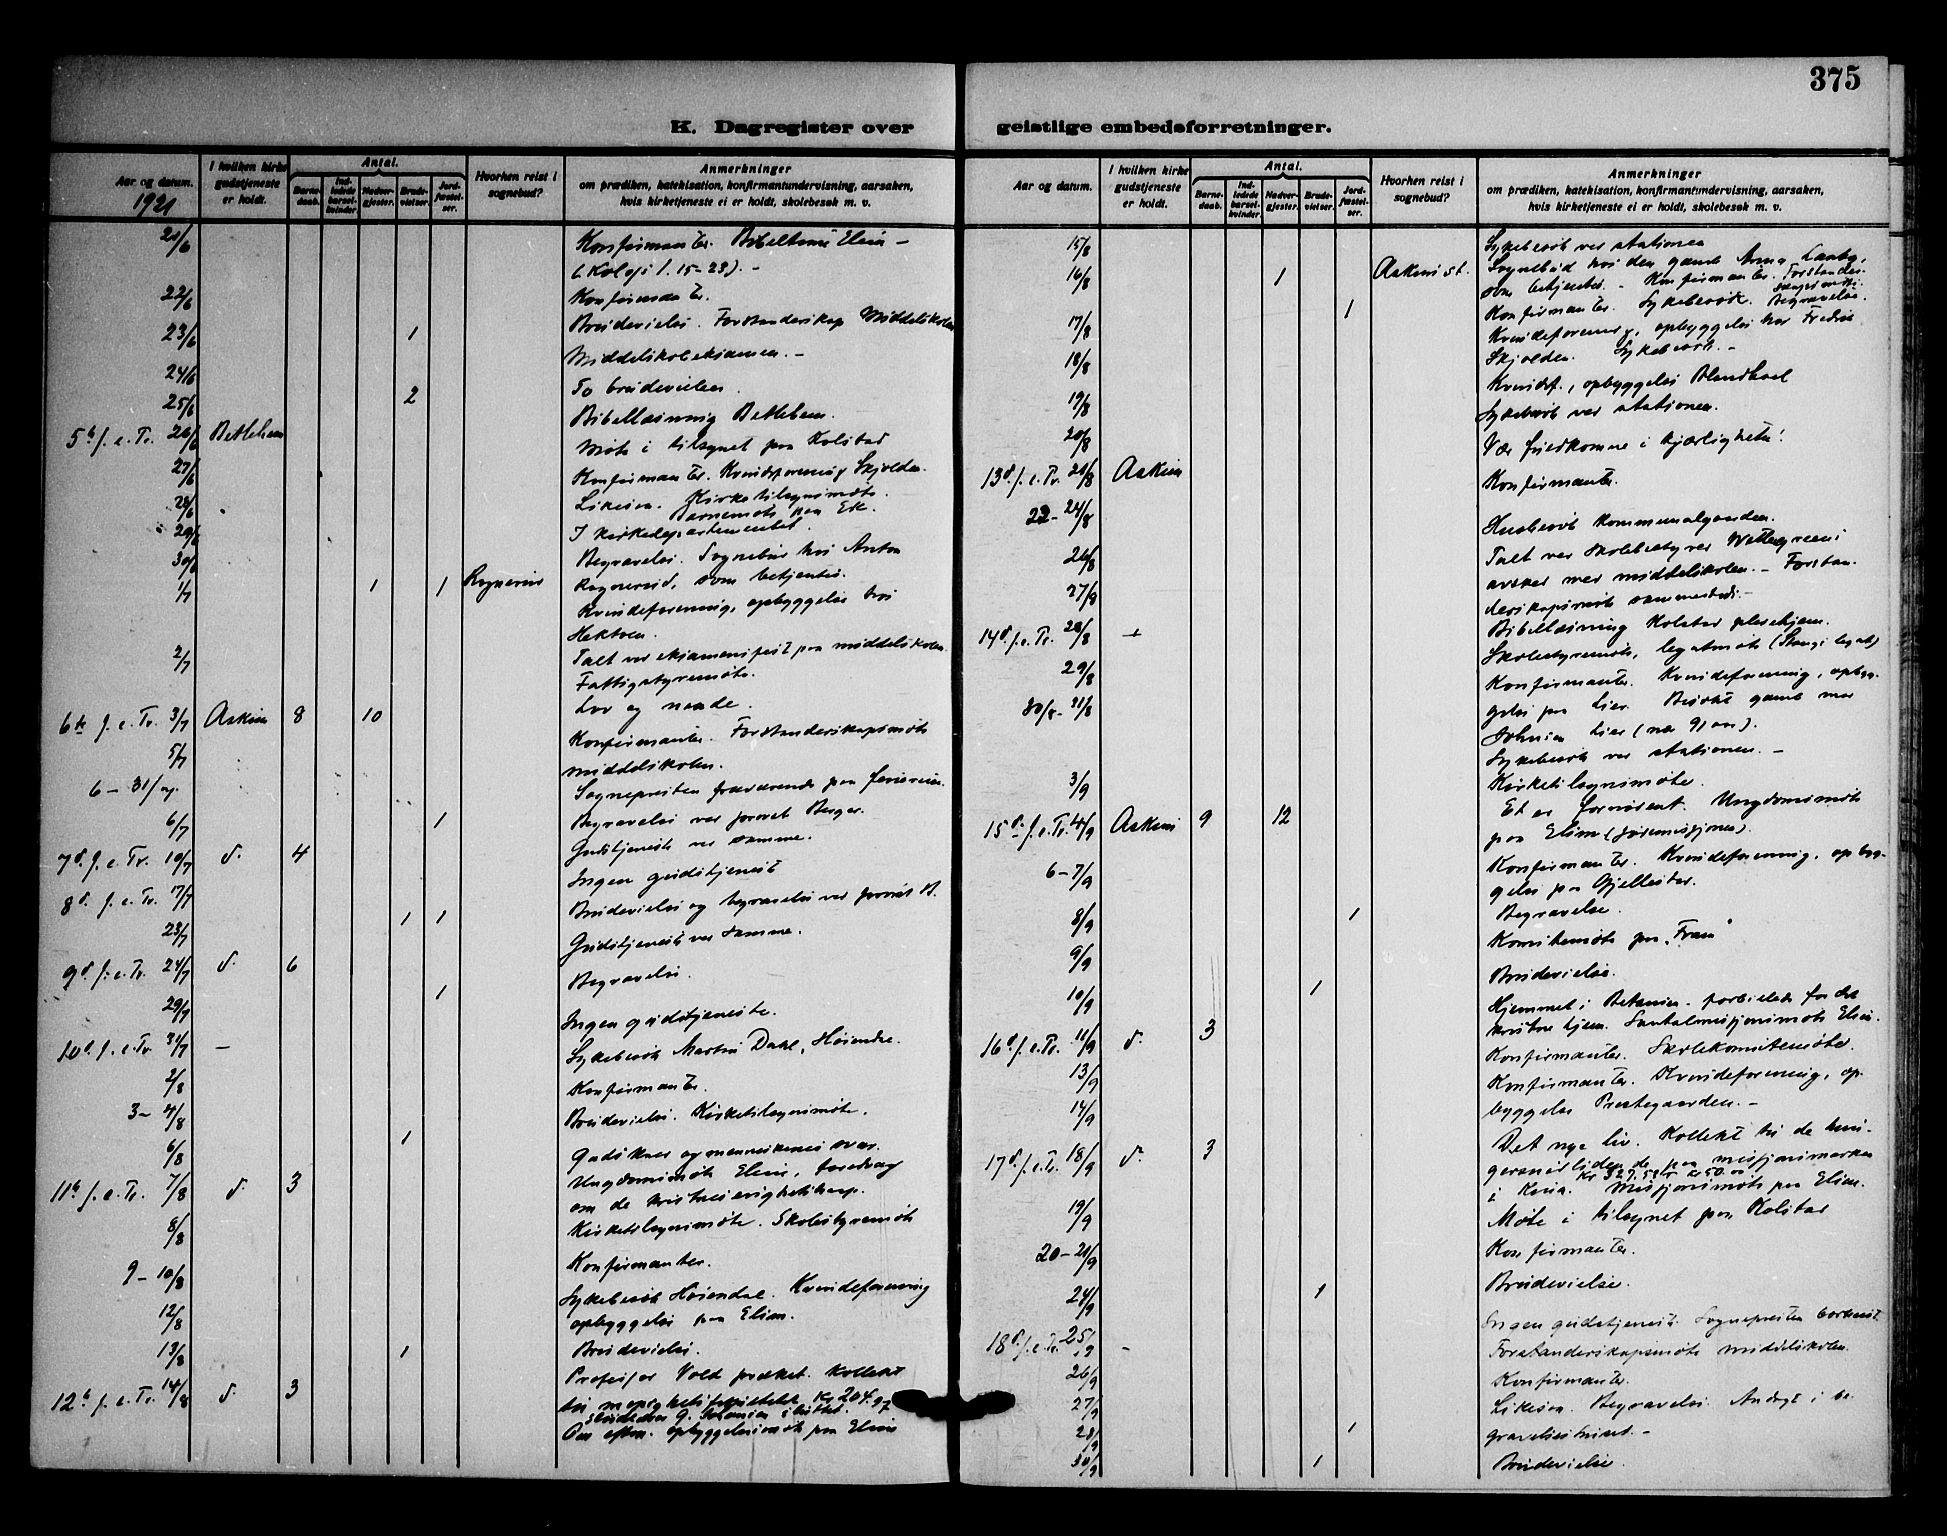 375
K. Dagregister over
geistlige embedsforretninger.
Aar og datum.
1921
I hvilken kirke gudstjeneste er holdt.
Antal.
Barnedaab.
Indledede barselkvinder.
Nadvergjester.
Brudevielser.
Jordfæstelser.
Hvorhen reist i sognebud?
Anmerkninger
om prædiken, katekisation, konfirmantundervisning, aarsaken,
hvis kirketjeneste ei er holdt, skolebesøk m. v.
21/6 Konfirmanter. Bibeltime Elim –
1. 15–23). –
22/6 Konfirmanter.
23/6 1 Brudevielse. Forstanderskap Middelskolen
24/6 Middelskoleeksamen. –
25/6 2 To brudevielser.
5te s. e. Tr. 26/6 Betlehem Bibellæsning Betlehem.
27/6 Møte i tilsynet paa Kolstad
28/6 Konfirmanter. Kvindeforening Skjolden.
29/6 Likesaa. Kirketilsynsmøte.
Barnemøte paa Ek.
30/6 I kirkedepartementet.
1/7 1 1 Begravelse. Sognebud hos Anton
som betjentes.
Kvindeforening, opbyggelse hos
Hektoen.
2/7 Talt ved eksamensfest paa middelskolen.
Fattigstyremøte.
6te s. e. Tr. 3/7 Askim 8 10 Lov og naade.
5/7 Konfirmanter. Forstanderskapsmøte
middelskolen.
6 – 31/ Sognepresten fraværende paa feriereise.
6/7 1 Begravelse ved provst Berger.
7d. s. e. Tr. 10/7 d. 4 Gudstjeneste ved samme.
8d. s. e. Tr. 17/7 Ingen gudstjeneste
23/7 1 1 Brudevielse og begravelse ved provst B.
9d. s. e. Tr. 24/7 d. 6 Gudstjeneste ved samme.
29/7 1 Begravelse.
10d. s. e. Tr. 31/7 – Ingen gudstjeneste.
2/8 Sykebesøk Martin Dahl,
3 – 4/8 Konfirmanter.
6/8 1 Brudevielse. Kirketilsynsmøte.
11te s. e. Tr. 7/8 d. 3 Guds og menneskenes svar.
Ungdomsmøte Elim, foredrag
om de
8/8 Kirketilsynsmøte. Skolestyremøte
9 – 10/8 Konfirmanter.
12/8 Sykebesøk Kvindeforening
opbyggelse paa Elim.
13/8 1 Brudevielse.
12te s. e. Tr. 14/8 d. 3 Professor Vold præket. Kollekt
Kr 204.97
opbyggelsesmøte paa Elim
Aar og datum.
I hvilken kirke gudstjeneste er holdt.
Antal.
Barnedaab.
Indledede barselkvinder.
Nadvergjester.
Brudevielser.
Jordfæstelser.
Hvorhen reist i sognebud?
Anmerkninger
om prædiken, katekisation, konfirmantundervisning, aarsaken,
hvis kirketjeneste ei er holdt, skolebesøk m. v.
15/8 Sykebesøk ved stationen
16/8 1 Askim st. Sognebud hos den gamle Anna
som betjentes. – Konfirmanter. Forstanderskapsmøte.
17/8 1 Konfirmanter. Sykebesøk. Begravelse.
18/8 Kvindeforening, opbyggelse hos Fredrik
Skjolden. Sykebesøk. –
19/8 Kvindef., opbyggelse
20/8 Sykebesøk ved stationen.
13d. s. e. Tr. 21/8 Askim Vær fuldkomne i kjærligheten!
22 – 24/8 Konfirmanter.
26/8 Husbesøk kommunalgaarden.
27/8 Talt ved skolebestyrer
avsked med middelskolen. – Forstanderskapsmøte
sammesteds. –
14d. s. e. Tr. 28/8 – Bibellæsning Kolstad pleiehjem.
29/8 Skolestyremøte, legatmøte
30/8 – 31/8 Konfirmanter. Kvindeforening, opbyggelse
paa Lier. Besøkt gamle mor
Lier (nær 91 aar).
Sykebesøk ved stationen. –
3/9 Kirketilsynsmøte
15d. s. e. Tr. 4/9 Askim 9 12 Et er fornødent. Ungdomsmøte
paa Elim
6 – 7/9 Konfirmanter. Kvindeforening, opbyggelse
paa
8/9 1 Begravelse.
9/9 Komitemøte paa „Fram“
10/9 1 Brudevielse.
16d. s. e. Tr. 11/9 d. 3 Hjemmet i Betania – forbillede for det
kristne hjem. Santalmisjonsmøte Elim.
13/9 Konfirmanter. Skolekomitemøte.
14/9 Konfirmanter. Kvindeforening, opbyggelse
Prestegaarden. –
17d. s. e. Tr. 18/9 d. 3 Det nye liv. Kollekt til de hungersnødlidende
paa misjonsmarken
i Kina. Kr 327.58 Misjonsmøte paa Elim.
19/9 Møte i tilsynet paa Kolstad
20 – 21/9 Konfirmanter.
24/9 1 Brudevielse.
18d. s. e. Tr. 25/9 – Ingen gudstjeneste. Sognepresten bortreist
26/9 Forstanderskapsmøte middelskolen.
27/9 Konfirmanter.
28/9 1 Likesaa. Begravelse. Andagt i begravelseshuset. –
30/9 1 Brudevielse